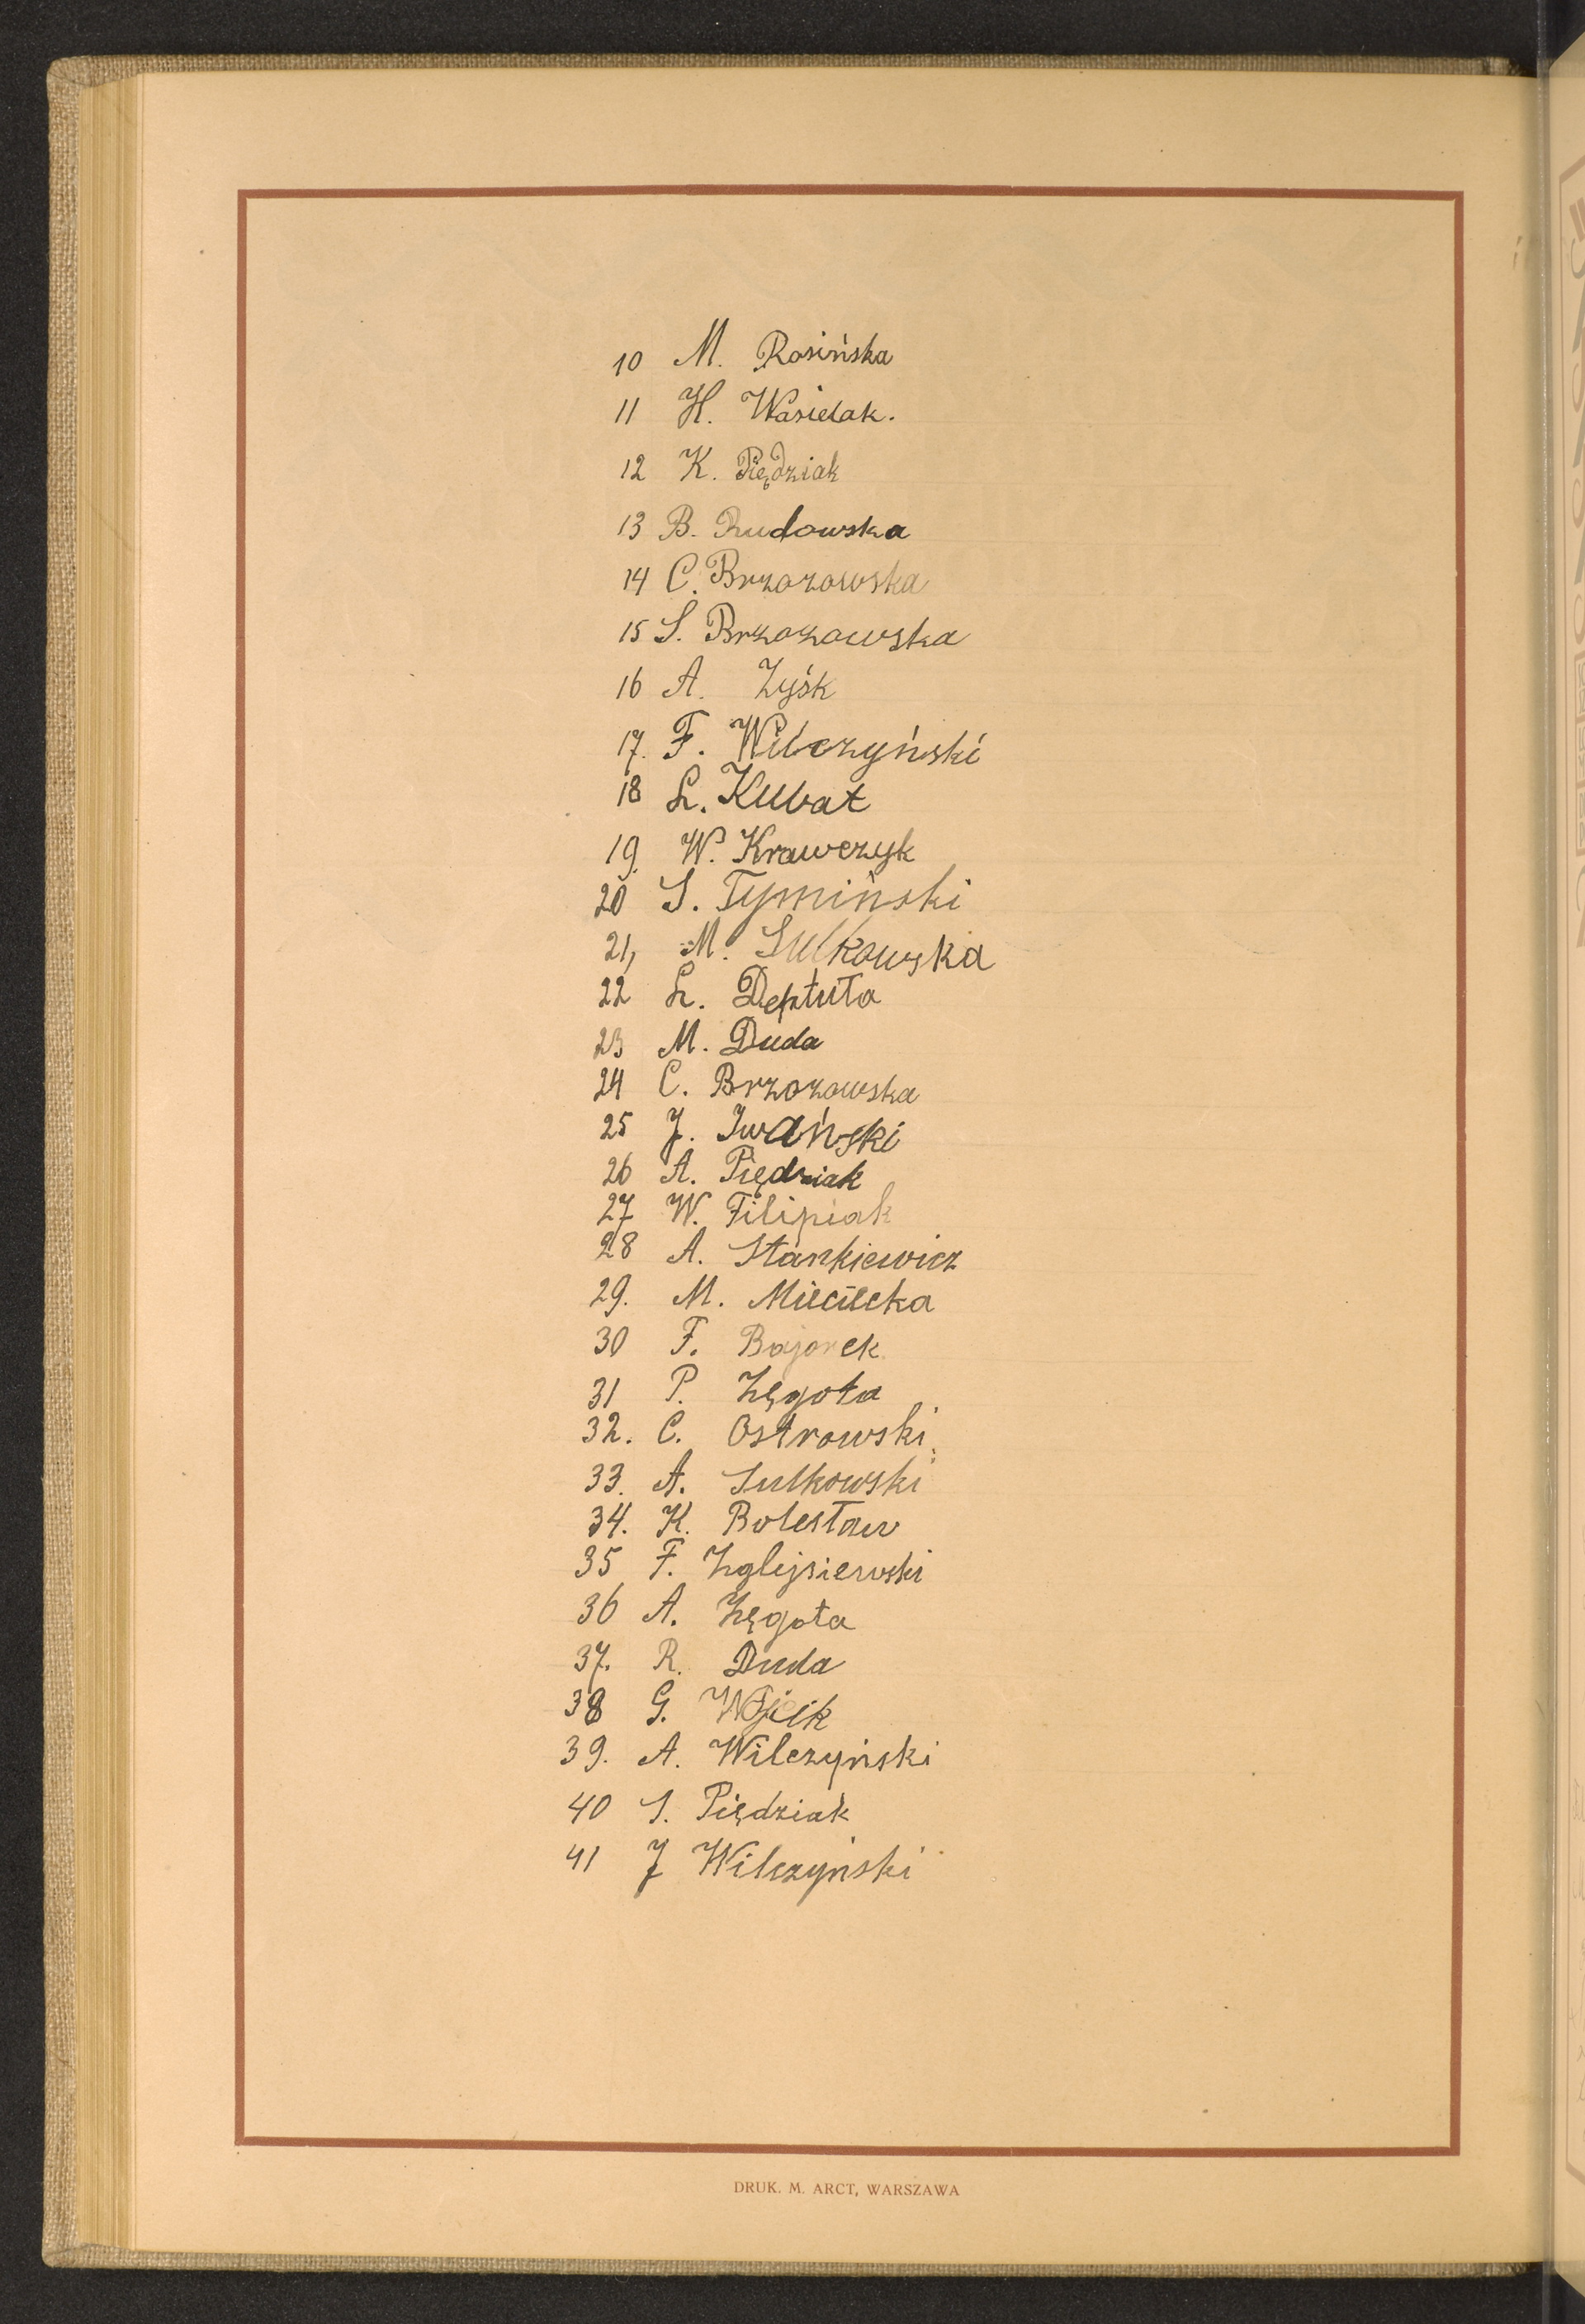 10 M. Rosińska
11 H. Wasielak.
12 K. Piędziak
13 B. Rudowska
14 C. Brzozowska
15 S. Brzozowska
16 A. Zyśk
17. F. Wilczyński
18 L. Kubat
19. W. Krawczyk
20 S. Tymiński
21, M. Sulkowska
22 L. Deptuła
23 M. Duda
24 C. Brzozowska
25 J. Iwański
26 A. Piędziak
27 W. Filipiak
28 A. Stankiewicz
29. M. Miecilcka
30 F. Bajorek
31 P. Zęgota
32. C. Ostrowski
33. A. Sulkowski
34. K. Bolesław
35 F. Zglejsiewski
36 A. Zęgota
37. R. Duda
38 G. Wójcik
39. A. Wilczyński
40 S. Piędziak
41 J Wilczyński
DRUK. M. ARCT, WARSZAWA